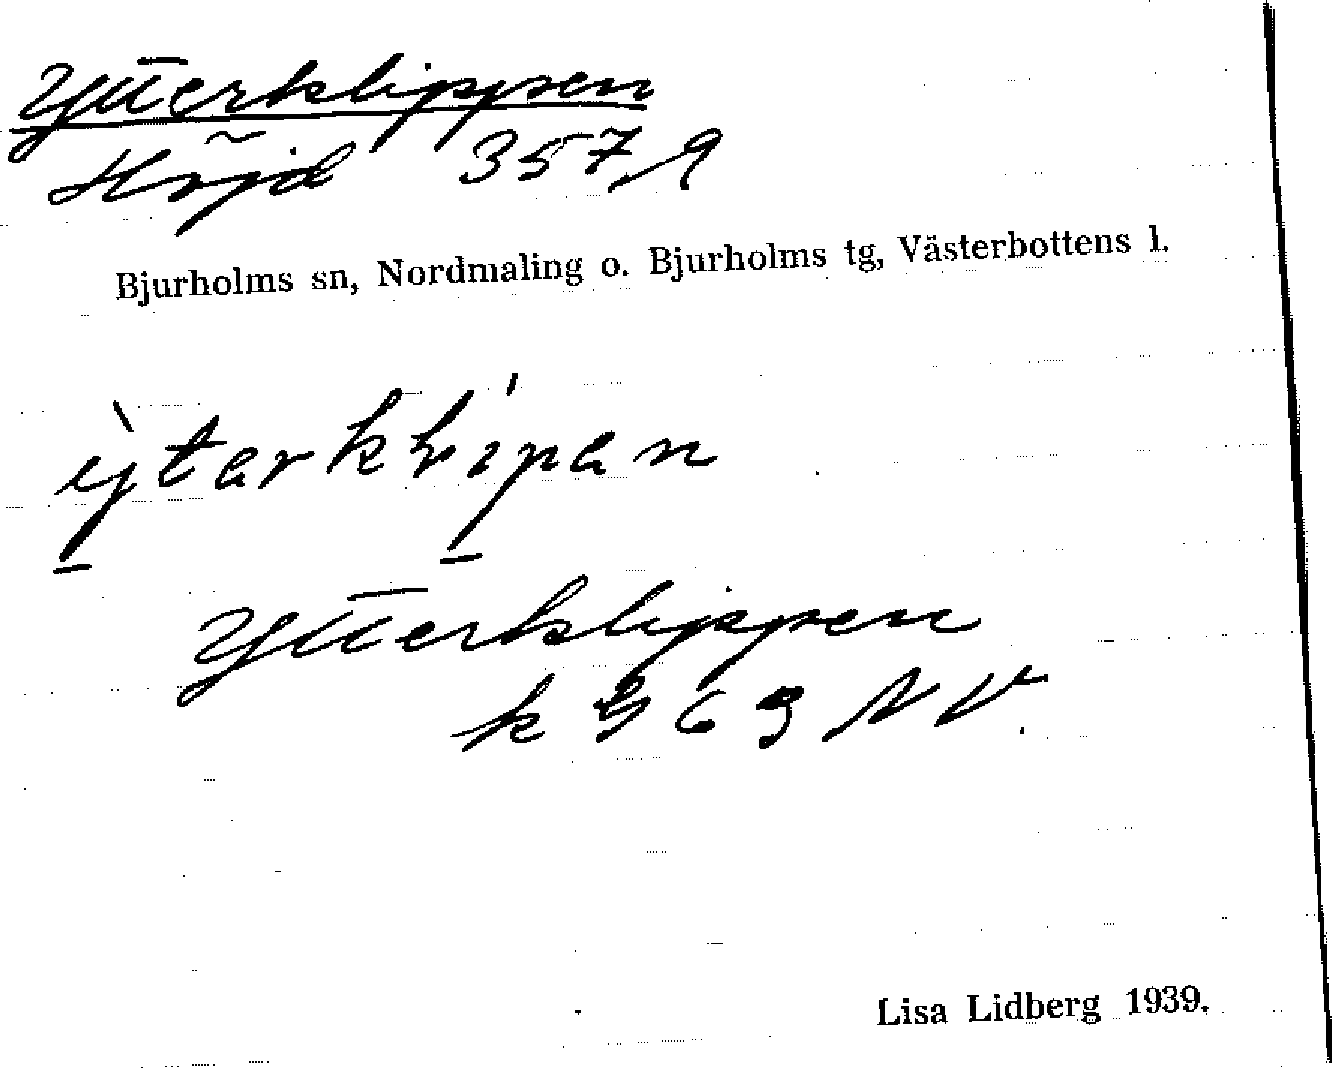 Ytterklippen
Höjd 357,9
Bjurholms sn, Nordmaling o. Bjurholms tg, Västerbottens l.
Ytterklippen
NV.
Lisa Lidberg 1939.